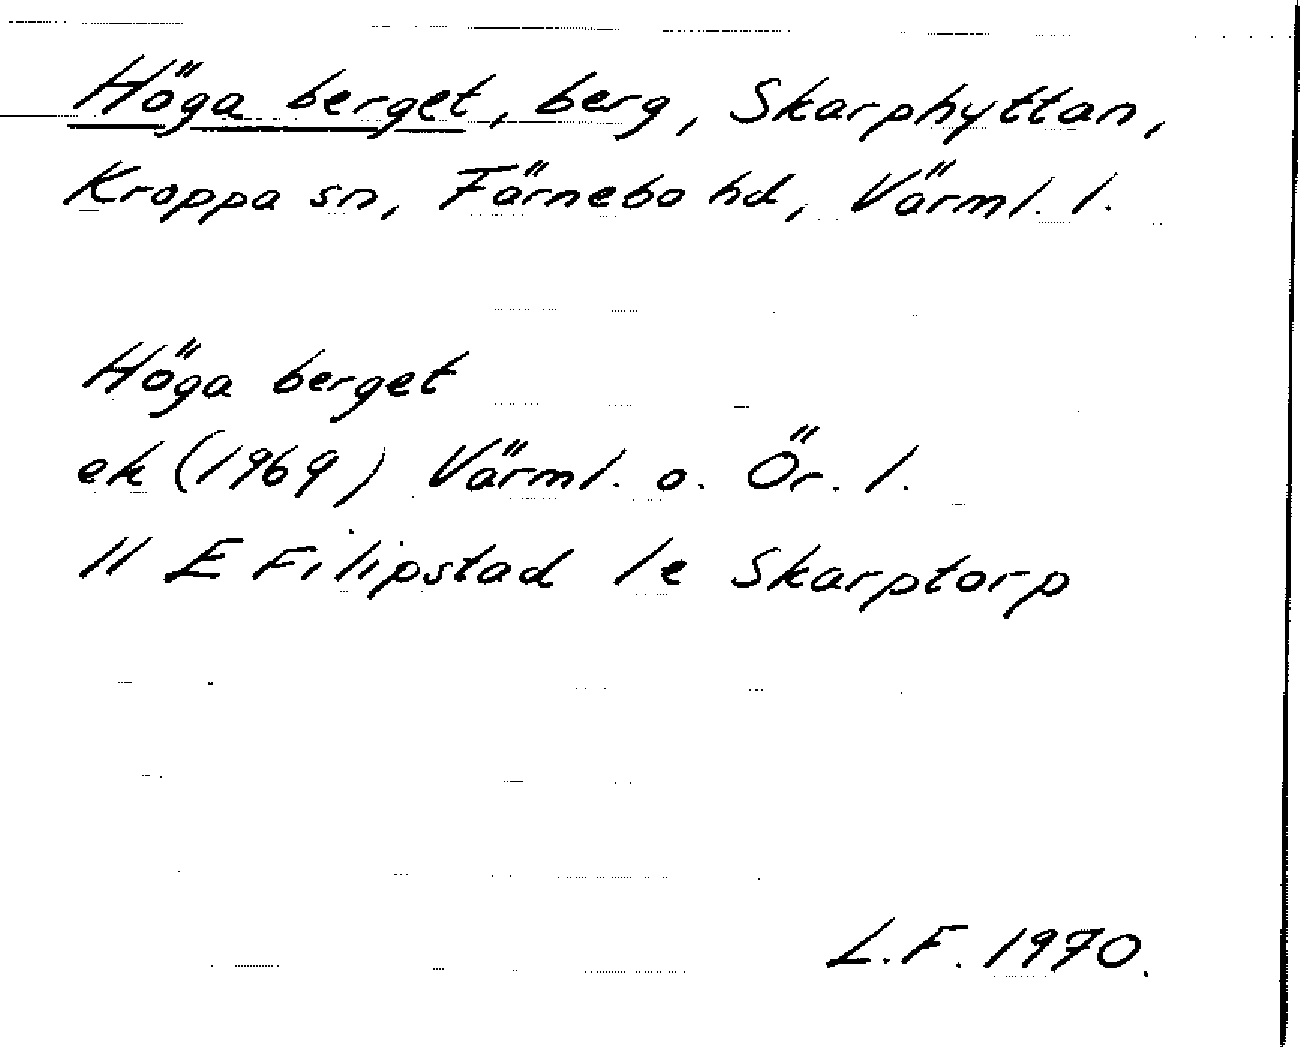 Höga berget, berg, Skarphyttan,
Kroppa sn, Färnebo hd, Värml. l.
Höga berget
ek (1969) Värml. o. Ör. l.
11 E Filipstad 1e Skarptorp
L.F. 1970.